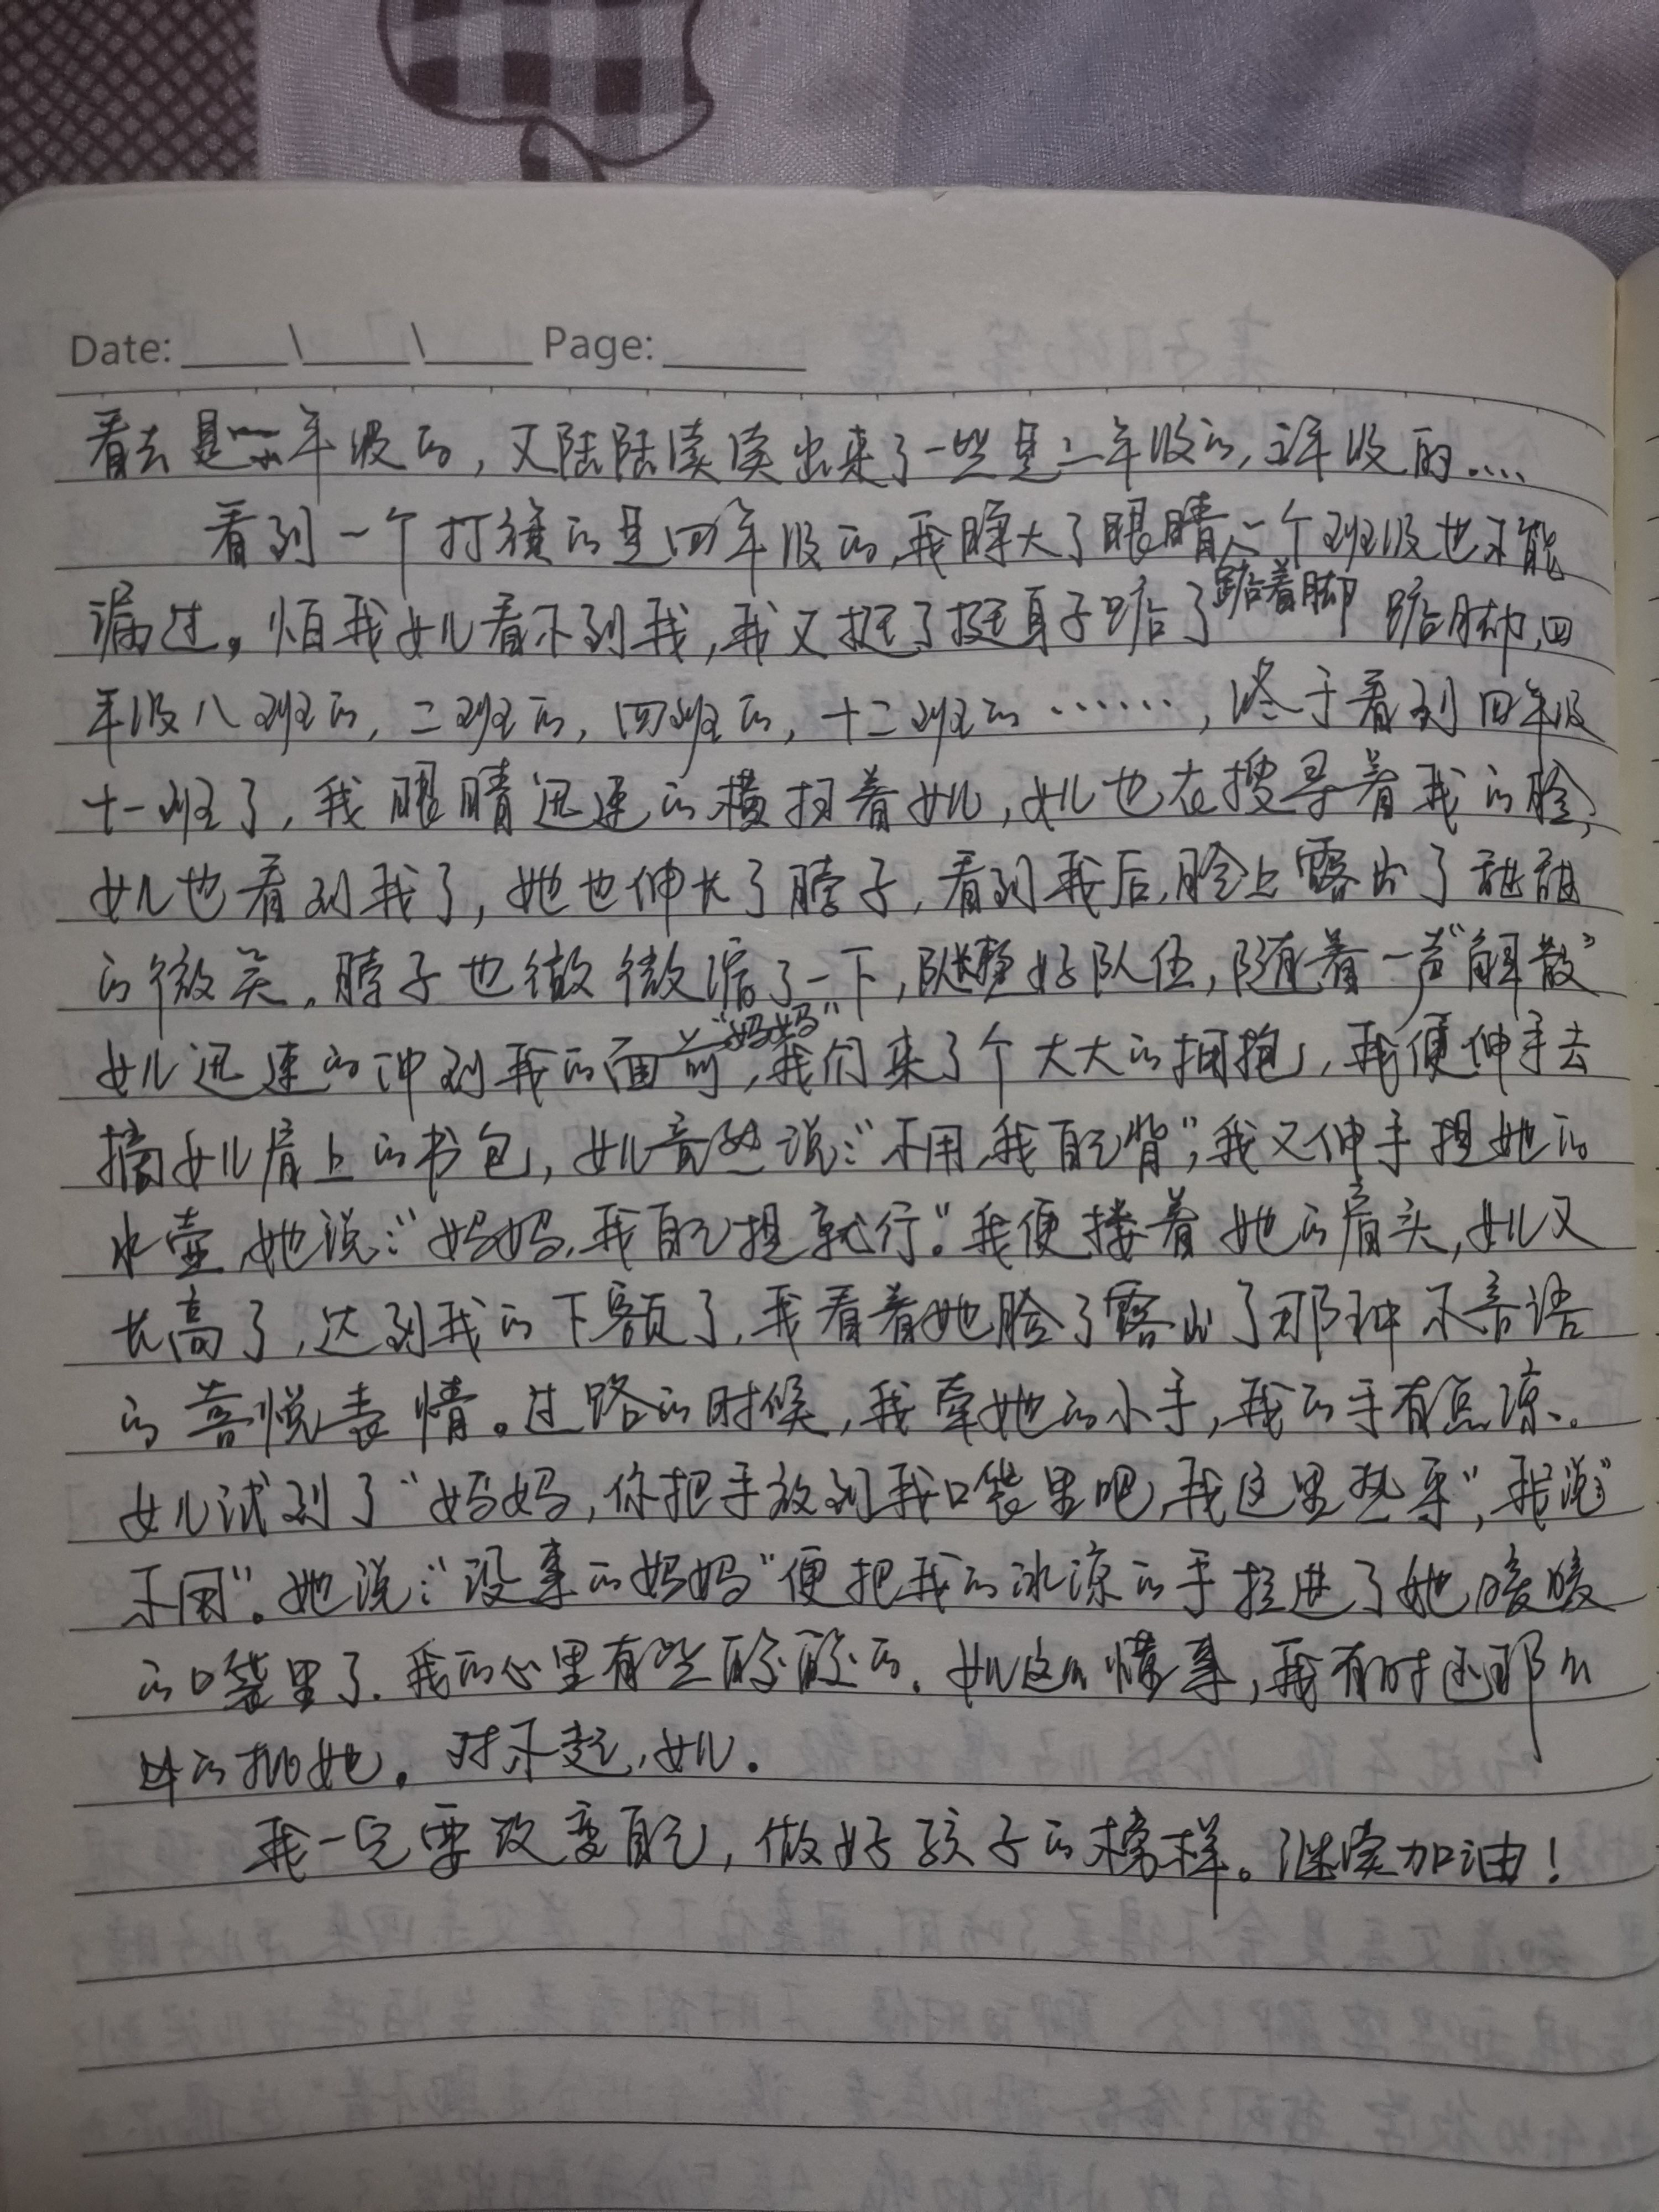 Date: ____\____\____ Page: ______
看去是一年级的,又陆陆续续出来了一些是二年级的,三年级的....
看到一个打旗的是四年级的,我睁大了眼睛,一个班级也不能
漏过。怕我女儿看不到我,我又挺了挺身子踮了踮着脚 踮脚,四
年级八班的,二班的,四班的,十二班的……,终于看到四年级
十一班了,我眼睛迅速的横扫着女儿,女儿也在搜寻着我的脸,
女儿也看到我了,她也伸长了脖子,看到我后,脸上露出了甜甜
的微笑。脖子也微微缩了一下,整好队伍,随着一声“解散”
女儿迅速的冲到我的面前,“妈妈”我们来了个大大的拥抱,我便伸手去
摘女儿肩上的书包,女儿竟然说:“不用,我自己背”,我又伸手提她的
水壶,她说:“妈妈,我自己提就行。”我便搂着她的肩头,女儿又
长高了,达到我的下额了,我看着她脸了露出了那种不言语
的喜悦表情。过路的时候,我牵她的小手,我的手有点凉。
女儿试到了“妈妈,你把手放到我口袋里吧,我这里热乎”,我说“
不用”。她说:“没事的妈妈”便把我的冰凉的手拉进了她暖暖
的口袋里了。我的心里有些酸酸的。女儿这么懂事,我有时还那么
的她。对不起,女儿。
我一定要改变自己,做好孩子的榜样。继续加油!